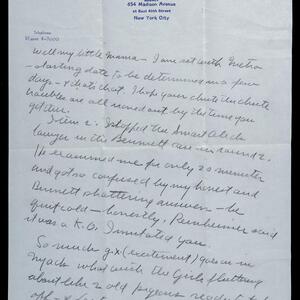 654 Madison Avenue
at East 60th Street
New York City
Telephone
Well my little Mama - I am set with Metro
- starting date to be determined in a few
days - & that's that. I hope your
troubles are all ironed out by the time you
get this.
Item 2. I stopped the Smart Aleck
lawyer in the Bennett case in round 2.
He examined me for only 20 minutes
and got so confused by my honest and
Burnett shattering answer - he
quit cold - honestly, said
it was a K.O. I imitated you.
So much (excitement) goes on in
Nyack what with the Girls fluttering
about like 2 old pigeons ready to